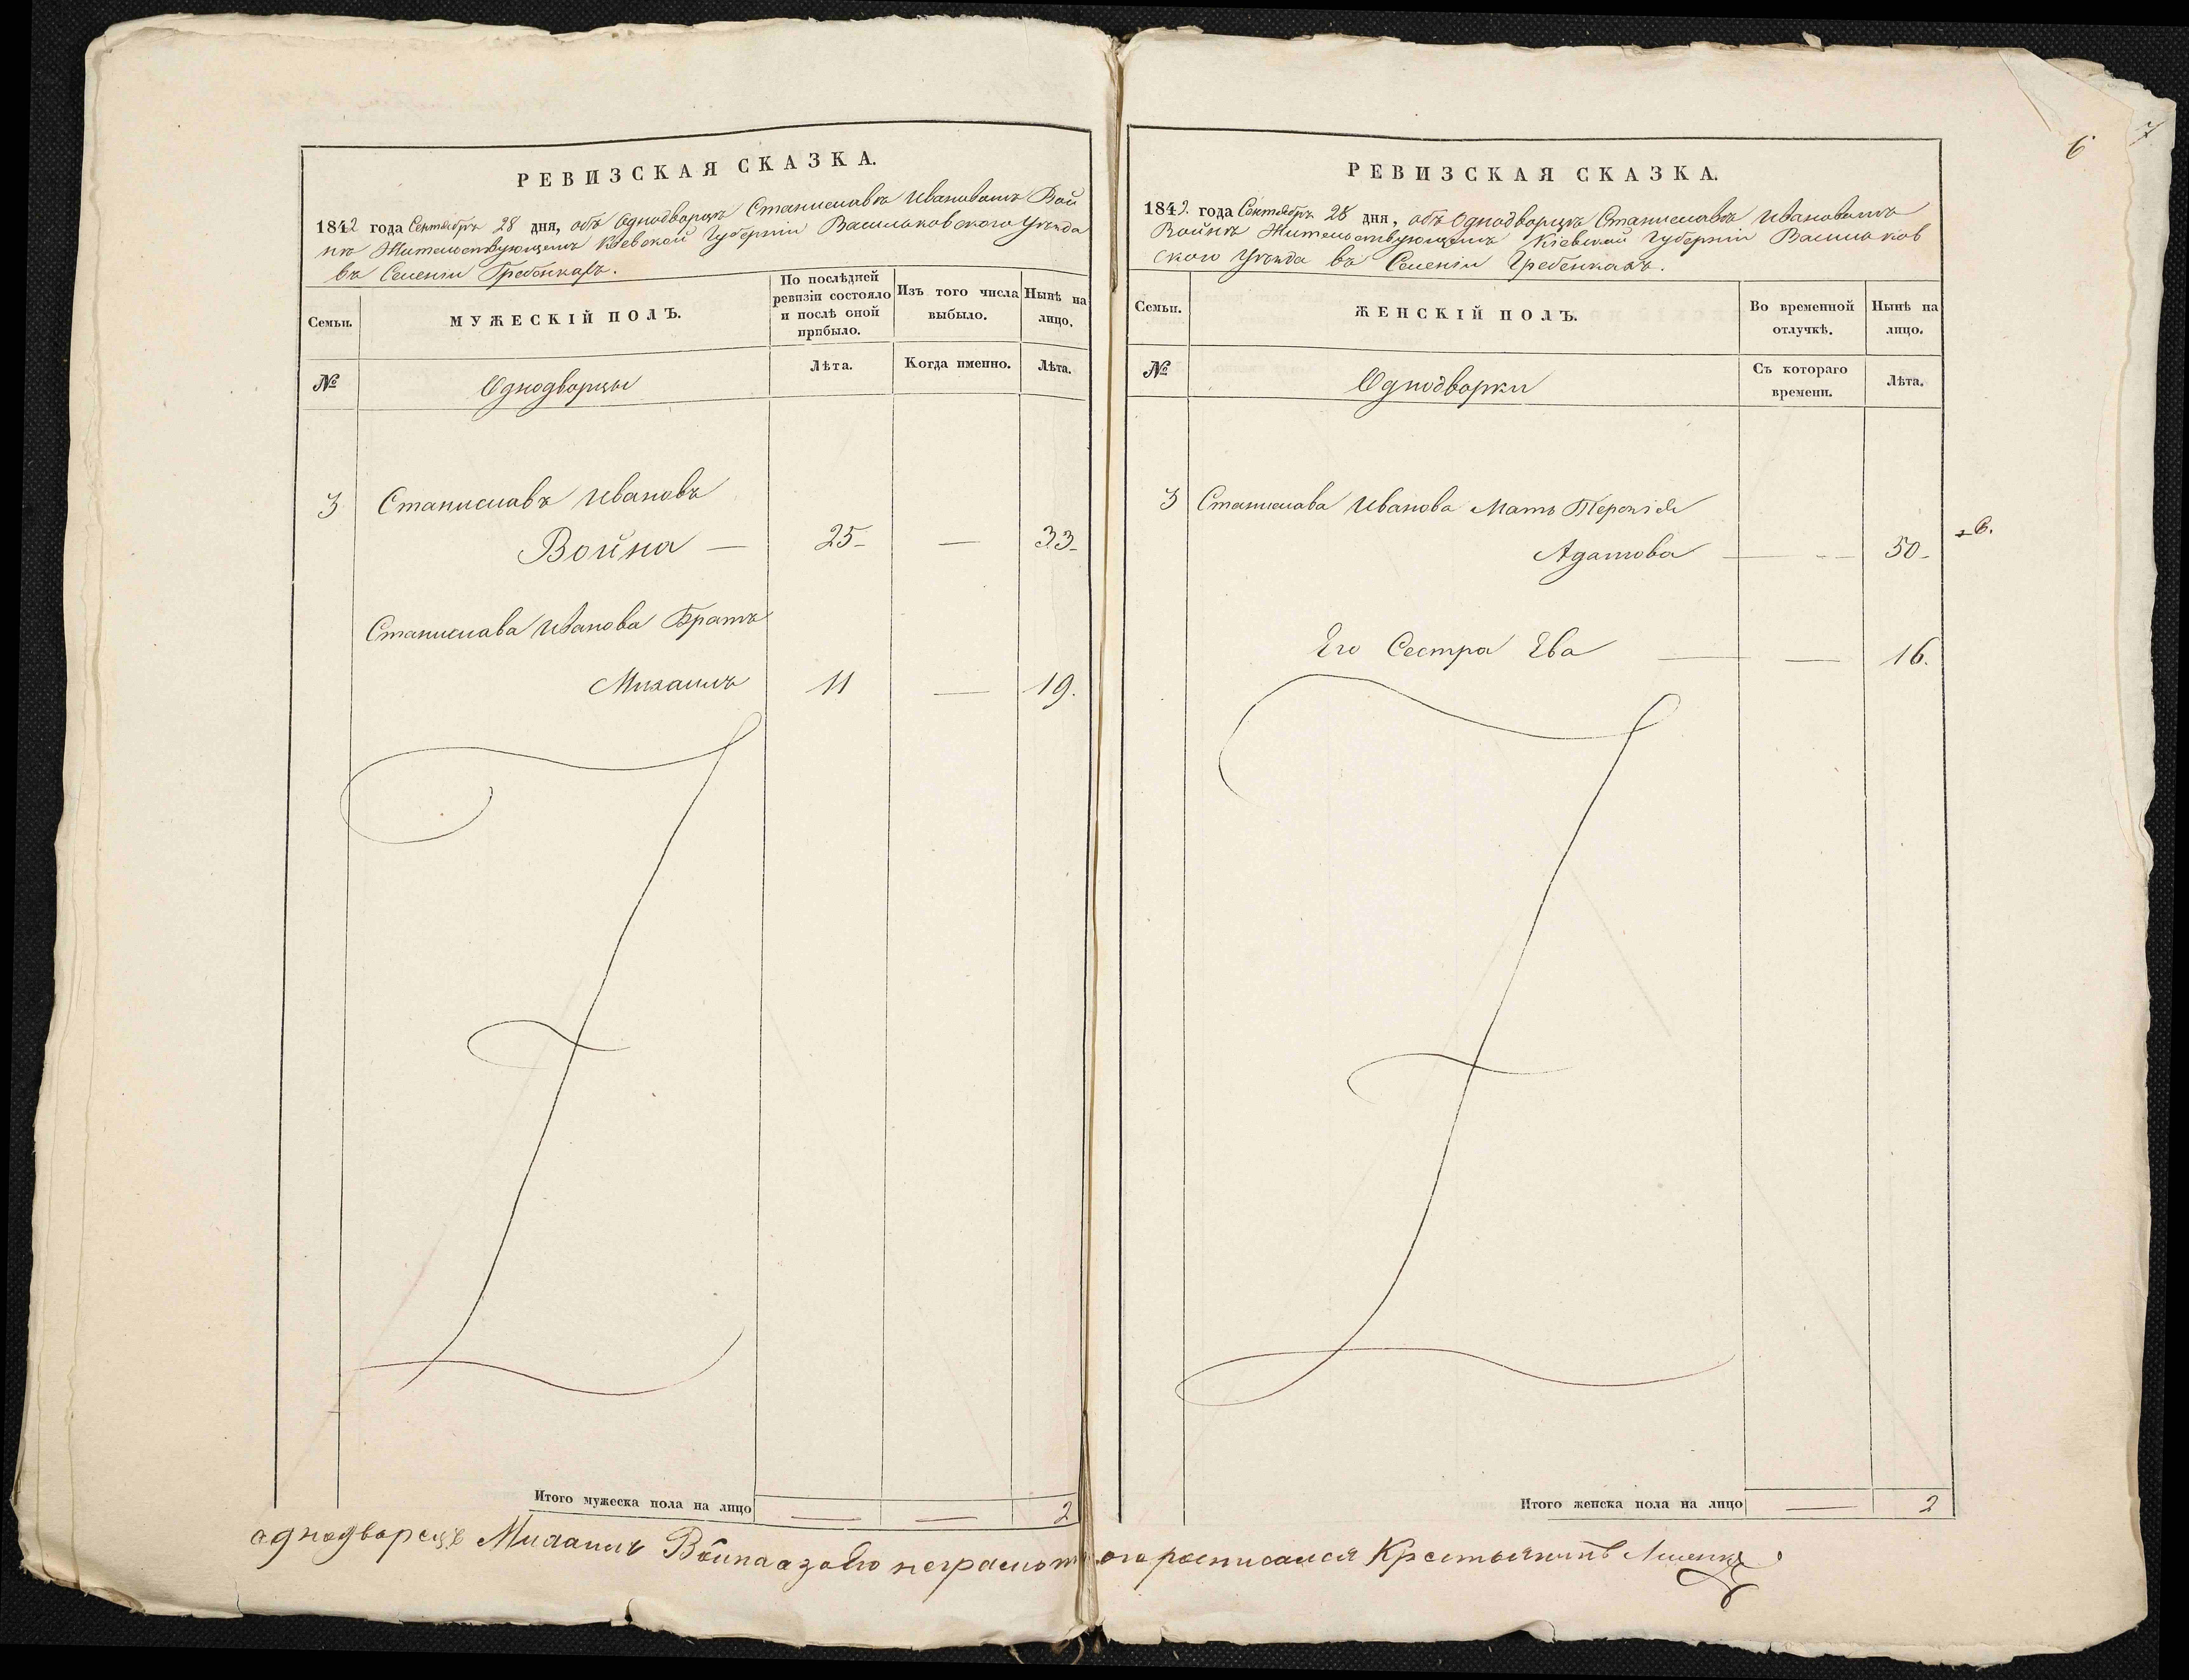 РЕВИЗСКАЯ СКАЗКА.
1842 года Сентября 28 дня, объ Однодворцѣ Станиславѣ Ивановомъ Вой
нѣ Жительствующемъ Кіевской Губерніи Васильковского Уѣзда
въ Селеніи Гребенкахъ.
Семьи.
МУЖЕСКІЙ ПОЛЪ.
По послѣдней
ревизіи состояло
и послѣ оной
прибыло.
Изъ того числа
выбыло.
Нынѣ на
лицо.
№
Однодворцы
Лѣта.
Когда именно.
Лѣта.
3 Станиславъ Ивановъ
Война — 25 — 33
Станислава Иванова Братъ
Михаилъ 11 — 19.
Итого мужеска пола на лицо — — 2
РЕВИЗСКАЯ СКАЗКА.
1842 года Сентября 28 дня, объ Однодворцѣ Станиславѣ Ивановомъ
Войнѣ Жительствующемъ Кіевской Губерніи Васильков
ского Уѣзда въ Селеніи Гребенкахъ.
Семьи.
ЖЕНСКІЙ ПОЛЪ.
Во временной
отлучкѣ.
Нынѣ на
лицо.
№
Однодворки
Съ котораго
времени.
Лѣта.
3 Станислава Иванова Мать
Адамова — — 50
Его Сестра Ева — — 16.
Итого женска пола на лицо — 2
6
7
однодворецъ Михаилъ Война а за Его неграмотного росписался Крестьянинъ